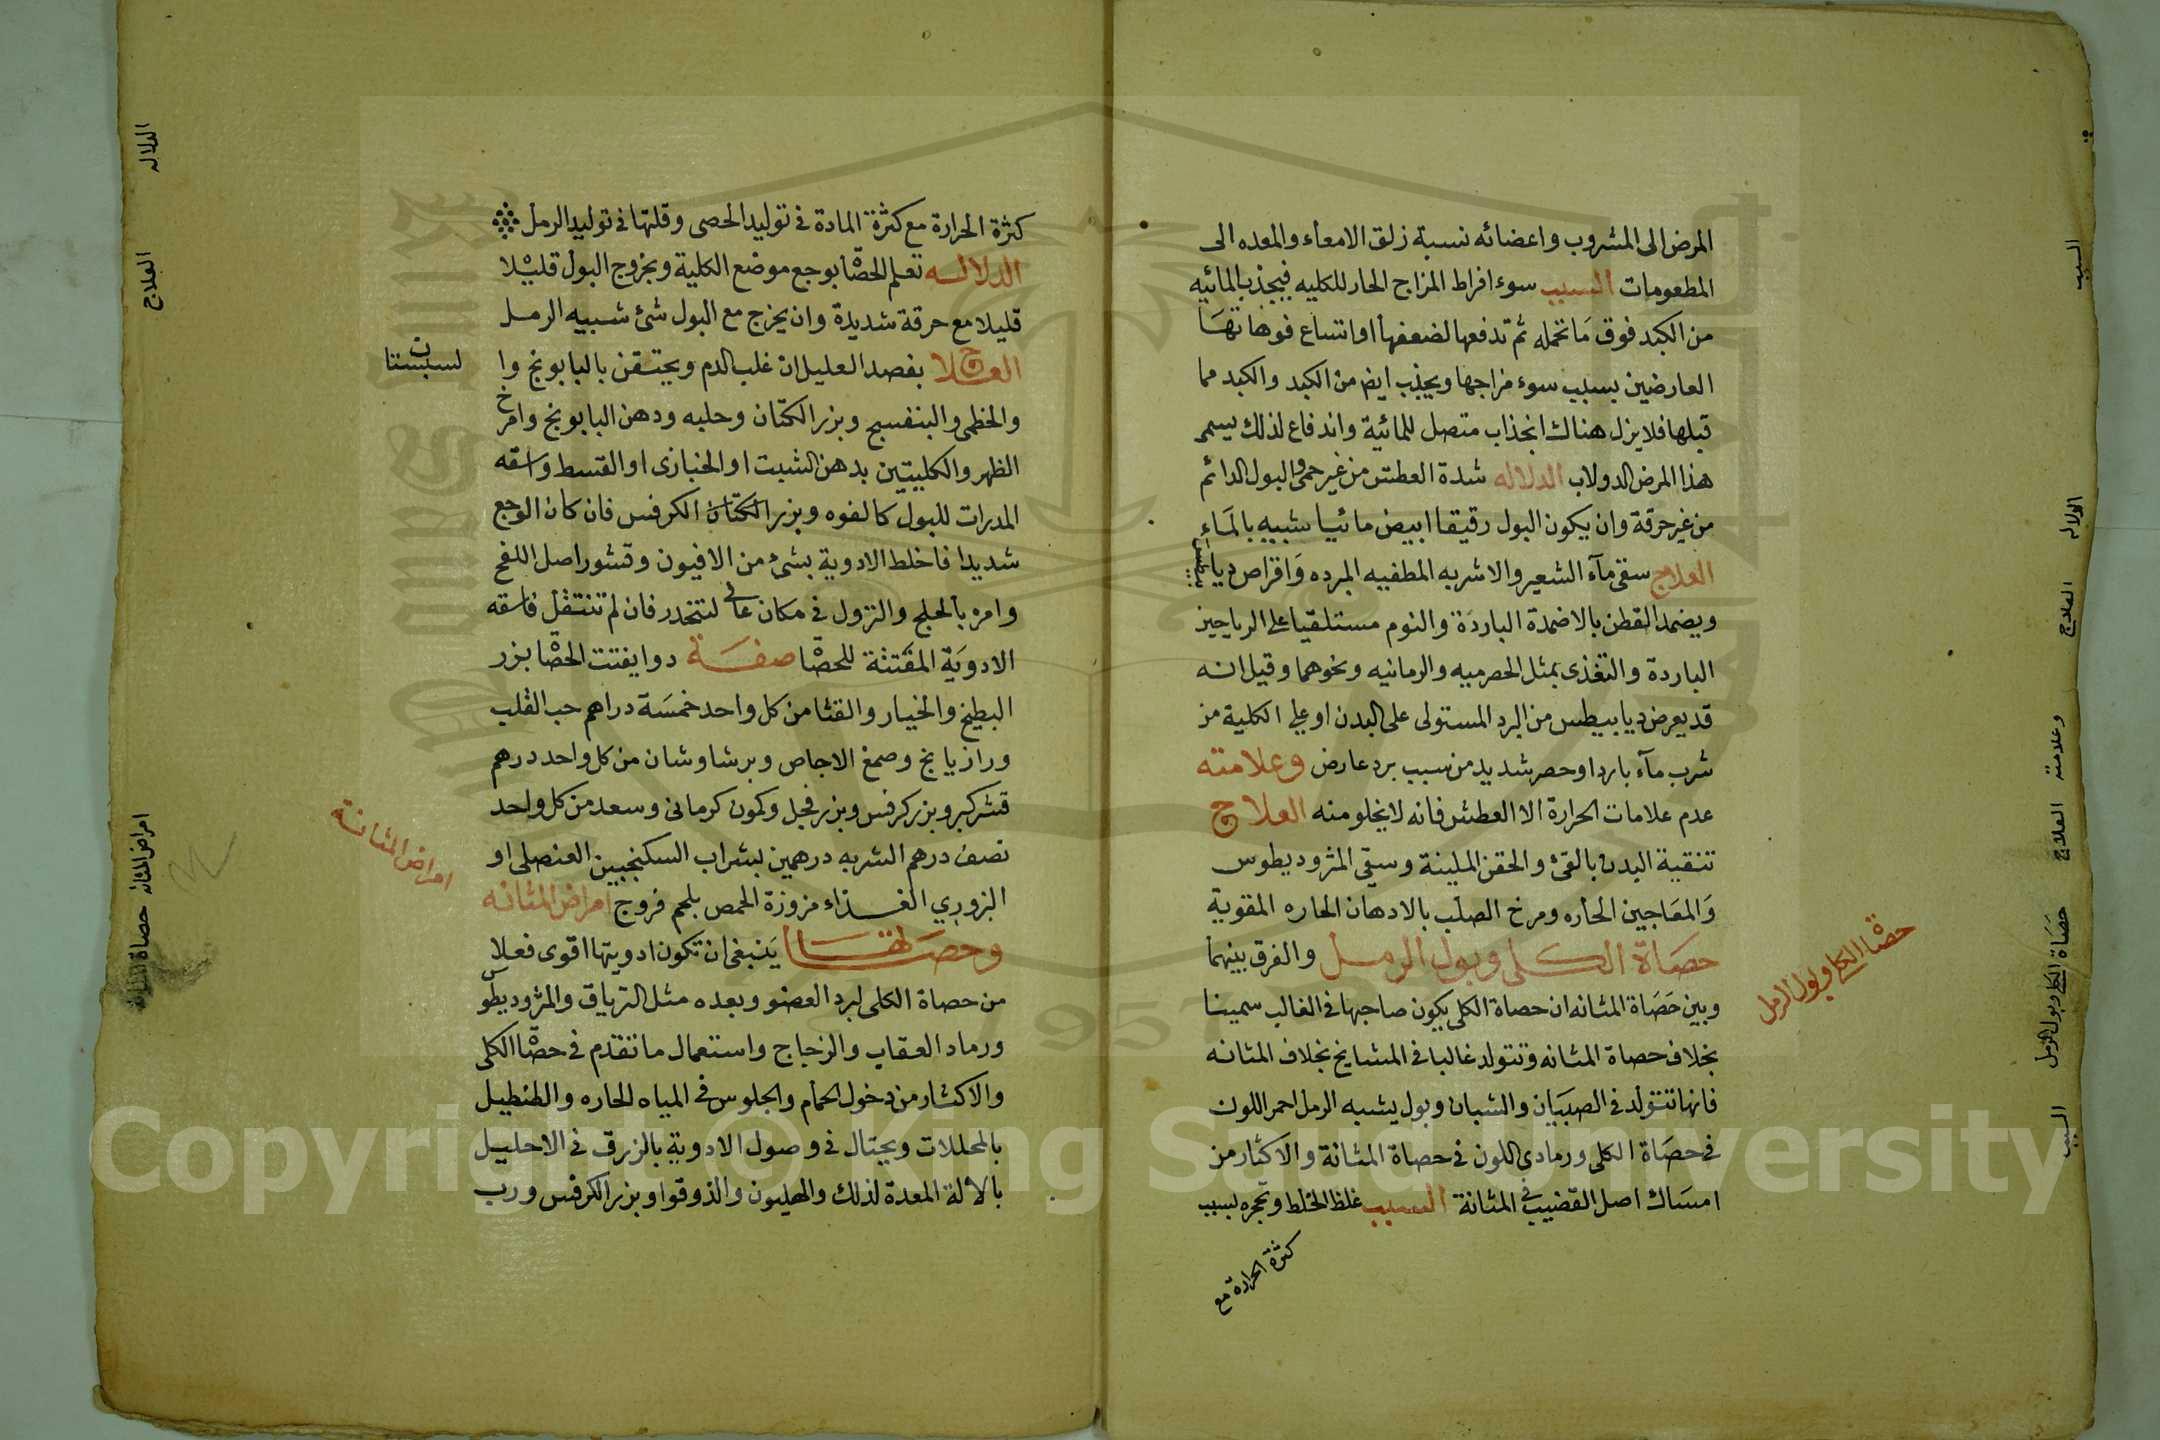 المرض الى المشروب واعضائه نسبة زلق الامعاء والمعده الى
المطعومات السبب سوء افراط المزاج الحار للكليه فيجذب المائيه
من الكبد فوق ما تحمله ثم تدفعها لضعفها او اتساع فوهاتها
العارضين بسبب سوء مزاجها ويجذب ايض من الكبد والكبد مما
قبلها فلا يزل هناك انجذاب متصل للمائية واندفاع لذلك يسمى
هذا المرض الدولاب الدلاله شدة العطش من غير حمى والبول الدائم
من غير حرقة وان يكون البول رقيقا ابيض مائيا شبيه بالماء
العلاج سقى مآء الشعير والاشربه المطفيه المبرده واقراص ديابيطس
ويضمد القطن بالاضمدة الباردة والنوم مستلقيا على الرياحين
الباردة والتغذى بمثل الحصرميه والرمانيه ونحوهما وقيل انه
قد يعرض ديابيطس من البرد المستولى على البدن او على الكلية من
شرب مآء بارد او حصر شديد من سبب برد عارض وعلامته
عدم علامات الحرارة الا العطش فانه لا يخلو منه العلاج
تنقية البدن بالقئ والحقن الملينة وسقى المثروديطوس
والمعاجين الحاره ومرخ الصلب بالادهان الحاره المقوية
حصاة الكلى وبول الرمل والفرق بينهما
وبين حصاة المثانه ان حصاة الكلى يكون صاحبها فى الغالب سمينا
بخلاف حصاة المثانه وتتولد غالبا فى المشايخ بخلاف المثانه
فانها تتولد فى الصبيان والشبان وبول يشبه الرمل احمر اللون
فى حصاة الكلى ورمادى اللون فى حصاة المثانة والاكثار من
امساك اصل القضيب فى المثانة السبب غلظ الخلط وتحجره بسبب
كثرة الحرارة مع
حصاا الكلى وبول الرمل
السبب
الدلاله
العلاج
وعلامته
العلاج
حصاة الكلى وبول الرمل
السبب
كثرة الحرارة مع كثرة المادة فى توليد الحصى وقلتها فى توليد الرمل
الدلاله تعلم الحصا بوجع موضع الكلية وبخروج البول قليلا
قليلا مع حرقة شديدة وان يخرج مع البول شئ شبيه الرمل
العلاج بفصد العليل ان غلب الدم ويحتقن بالبابونج وا
والخطمى والبنفسج وبزر الكتان وحلبه ودهن البابونج وامرخ
الظهر والكليتين بدهن الشبت او الخبازى او القسط واسقه
المدرات للبول كالفوه وبزر الكتان الكرفس فان كان الوجع
شديدا فاخلط الادوية بشىء من الافيون وقشور اصل اللفح
وامره بالحلج والنزول فى مكان عالى لتنحدر فان لم تنتقل فاسقه
الادوية المفتتة للحصا صفة دوا يفتت الحصا بزر
البطيخ والخيار والقثا من كل واحد خمسة دراهم حب القلب
ورازيانج وصمغ الاجاص وبرشاوشان من كل واحد درهم
قشر كبر وبزر كرفس وبزر فجل وكمون كرمانى وسعد من كل واحد
نصف درهم الشربه درهمين بشراب السكنجبين العنصلى او
البزورى الغذاء مزوزة الحمص بلحم فروج امراض المثانه
وحصاتها ينبغى ان تكون ادويتها اقوى فعلا
من حصاة الكلى لبرد العضو وبعده مثل الترياق والمثروديطوس
ورماد العقاب والزجاج واستعمال ما تقدم فى حصا الكلى
والاكثار من دخول الحمام والجلوس فى المياه الحاره والطنطيل
بالمحللات ويحتال فى وصول الادوية بالزرق فى الاحليل
بالالة المعدة لذلك والهليون والذوقوا وبزر الكرفس ورب
امراض المثانة
الدلاله
العلاج
امراض المثانه
حصاة المثانه